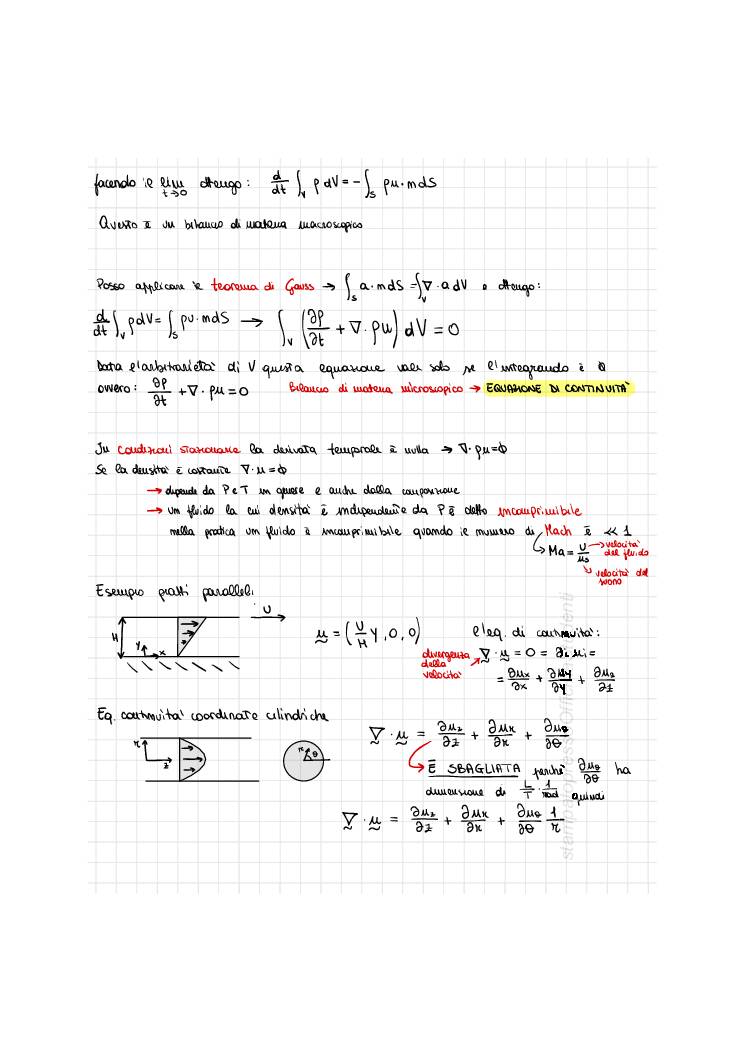 facendo il lim t→0 ottengo: d/dt ∫_V ρ dV = - ∫_S ρu · n dS
Questo è un bilancio di materia macroscopico
Posso applicare il teorema di Gauss → ∫_S a · n dS = ∫_V ∇ · a dV e ottengo:
d/dt ∫_V ρ dV = ∫_S ρu · n dS → ∫_V (∂ρ/∂t + ∇ · ρu) dV = 0
Data l'arbitrarietà di V questa equazione vale solo se l'integrando è 0
ovvero: ∂ρ/∂t + ∇ · ρu = 0 Bilancio di materia microscopico → EQUAZIONE DI CONTINUITÀ
In condizioni stazionarie la derivata temporale è nulla → ∇ · ρu = 0
Se la densità è costante ∇ · u = 0
→ dipende da P e T in genere e anche dalla composizione
→ un fluido la cui densità è indipendente da P è detto incomprimibile
nella pratica un fluido è incomprimibile quando il numero di Mach è << 1
Ma = U/u_s → velocità del fluido
velocità del suono
Esempio piatti paralleli
U
H y x
u = (U/H y, 0, 0) e l'eq. di continuità:
divergenza della velocità ∇ · u = 0 = ∂i ui =
= ∂ux/∂x + ∂uy/∂y + ∂uz/∂z
Eq. continuità coordinate cilindriche
r z r θ
∇ · u = ∂uz/∂z + ∂ur/∂r + ∂uθ/∂θ
È SBAGLIATA perché ∂uθ/∂θ ha
dimensione di L/T · 1/rad quindi
∇ · u = ∂uz/∂z + ∂ur/∂r + ∂uθ/∂θ 1/r